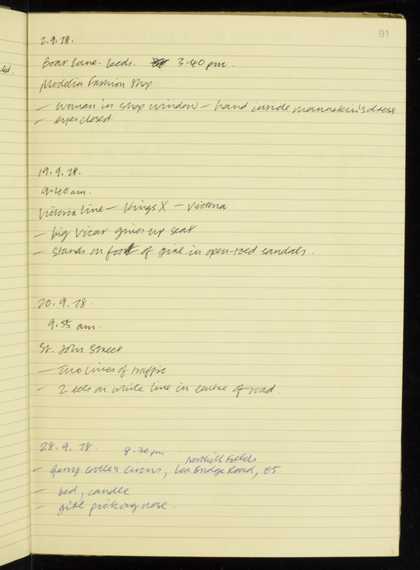 91
2.9.78.
Boar Lane. Leeds. 3.40 pm.
Fashion Shop
– woman in shop window – hand inside mannekin's dress
– eyes closed.
19.9.78.
9.40 am.
Victoria Line – Kings X – Victoria
– big vicar gives up seat
– stands on foot of girl in open-toed sandals.
20.9.78
9.55 am.
St. John Street
– Two lines of traffic
– 2 eels on white line in centre of road.
28.9.78. 8.30 pm
Fields
– Gerry Cottle's Circus, Lea Bridge Road, E5
– bed, candle
– girl picking nose.